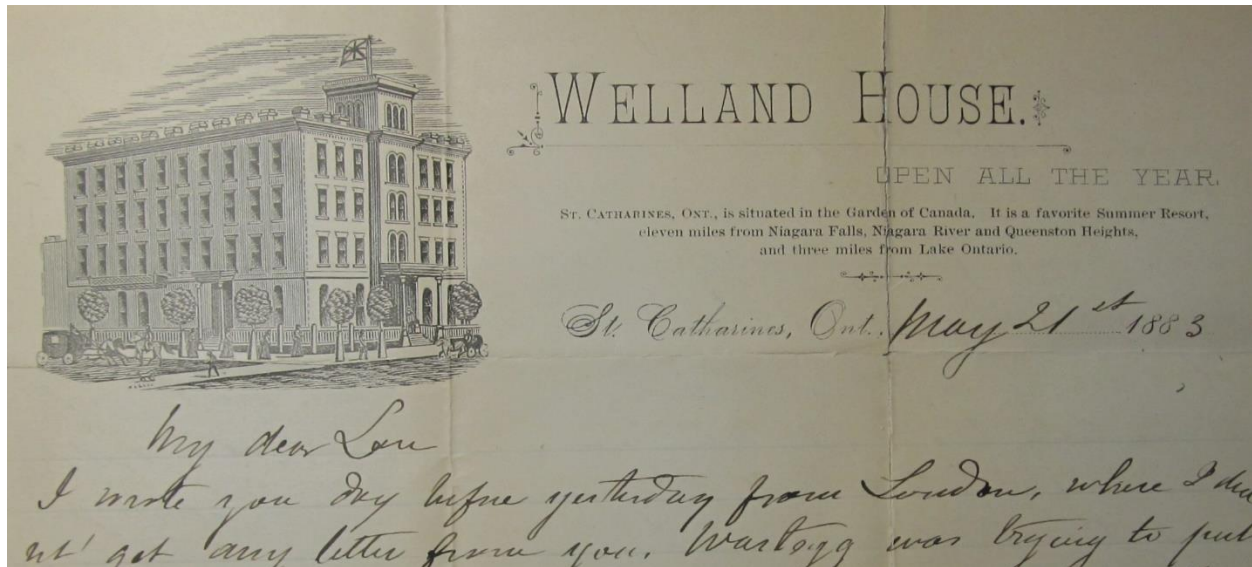 WELLAND HOUSE.
OPEN ALL THE YEAR.
ST. CATHARINES, ONT., is situated in the Garden of Canada. It is a favorite Summer Resort,
eleven miles from Niagara Falls, Niagara River and Queenston Heights,
and three miles from Lake Ontario.
St. Catharines, Ont. May 21st 1883
My dear Lou
I wrote you day before yesterday from London, where I did
nt' get any letter from you. was trying to put